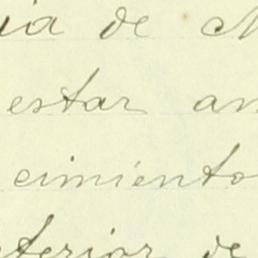 ia de N
estar an
cimiento
terior de